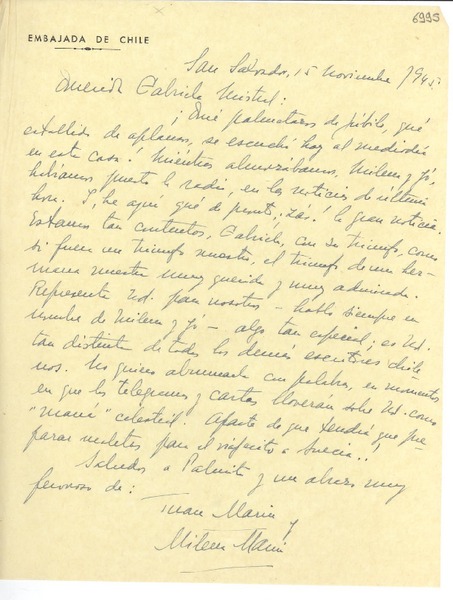 6995
EMBAJADA DE CHILE
San Salvador, 15 Noviembre 1945.
Querida Gabriela Mistral:
¡Qué palmoteos de júbilo, qué
estallidos de aplausos, se escuchó hoy al mediodía
en esta casa! Mientras almorzábamos, Milena y Yó,
habíamos puesto la radio, en las noticias de última
hora. Y, he aquí qué de pronto, ¡zas! la gran noticia.
Estamos tan contentos, Gabriela, con su triunfo, como
si fuera un triunfo nuestro, el triunfo de una her-
mana nuestra muy querida y muy admirada.
Representa Ud. para nosotros - hablo siempre en
nombre de Milena y Yó - algo tan especial; es Ud.
tan distinta de todos los demás escritores chile-
nos. No quiero abrumarla con palabras, en momentos
en que los telegramas y cartas lloverán sobre Ud. como
"maná" celestial. Aparte de que tendrá que pre-
parar maletas para el viajecito a Suecia..!
Saludos a Palmita y un abrazo muy
fervoroso de:
Juan Marín
y
Milena Marín